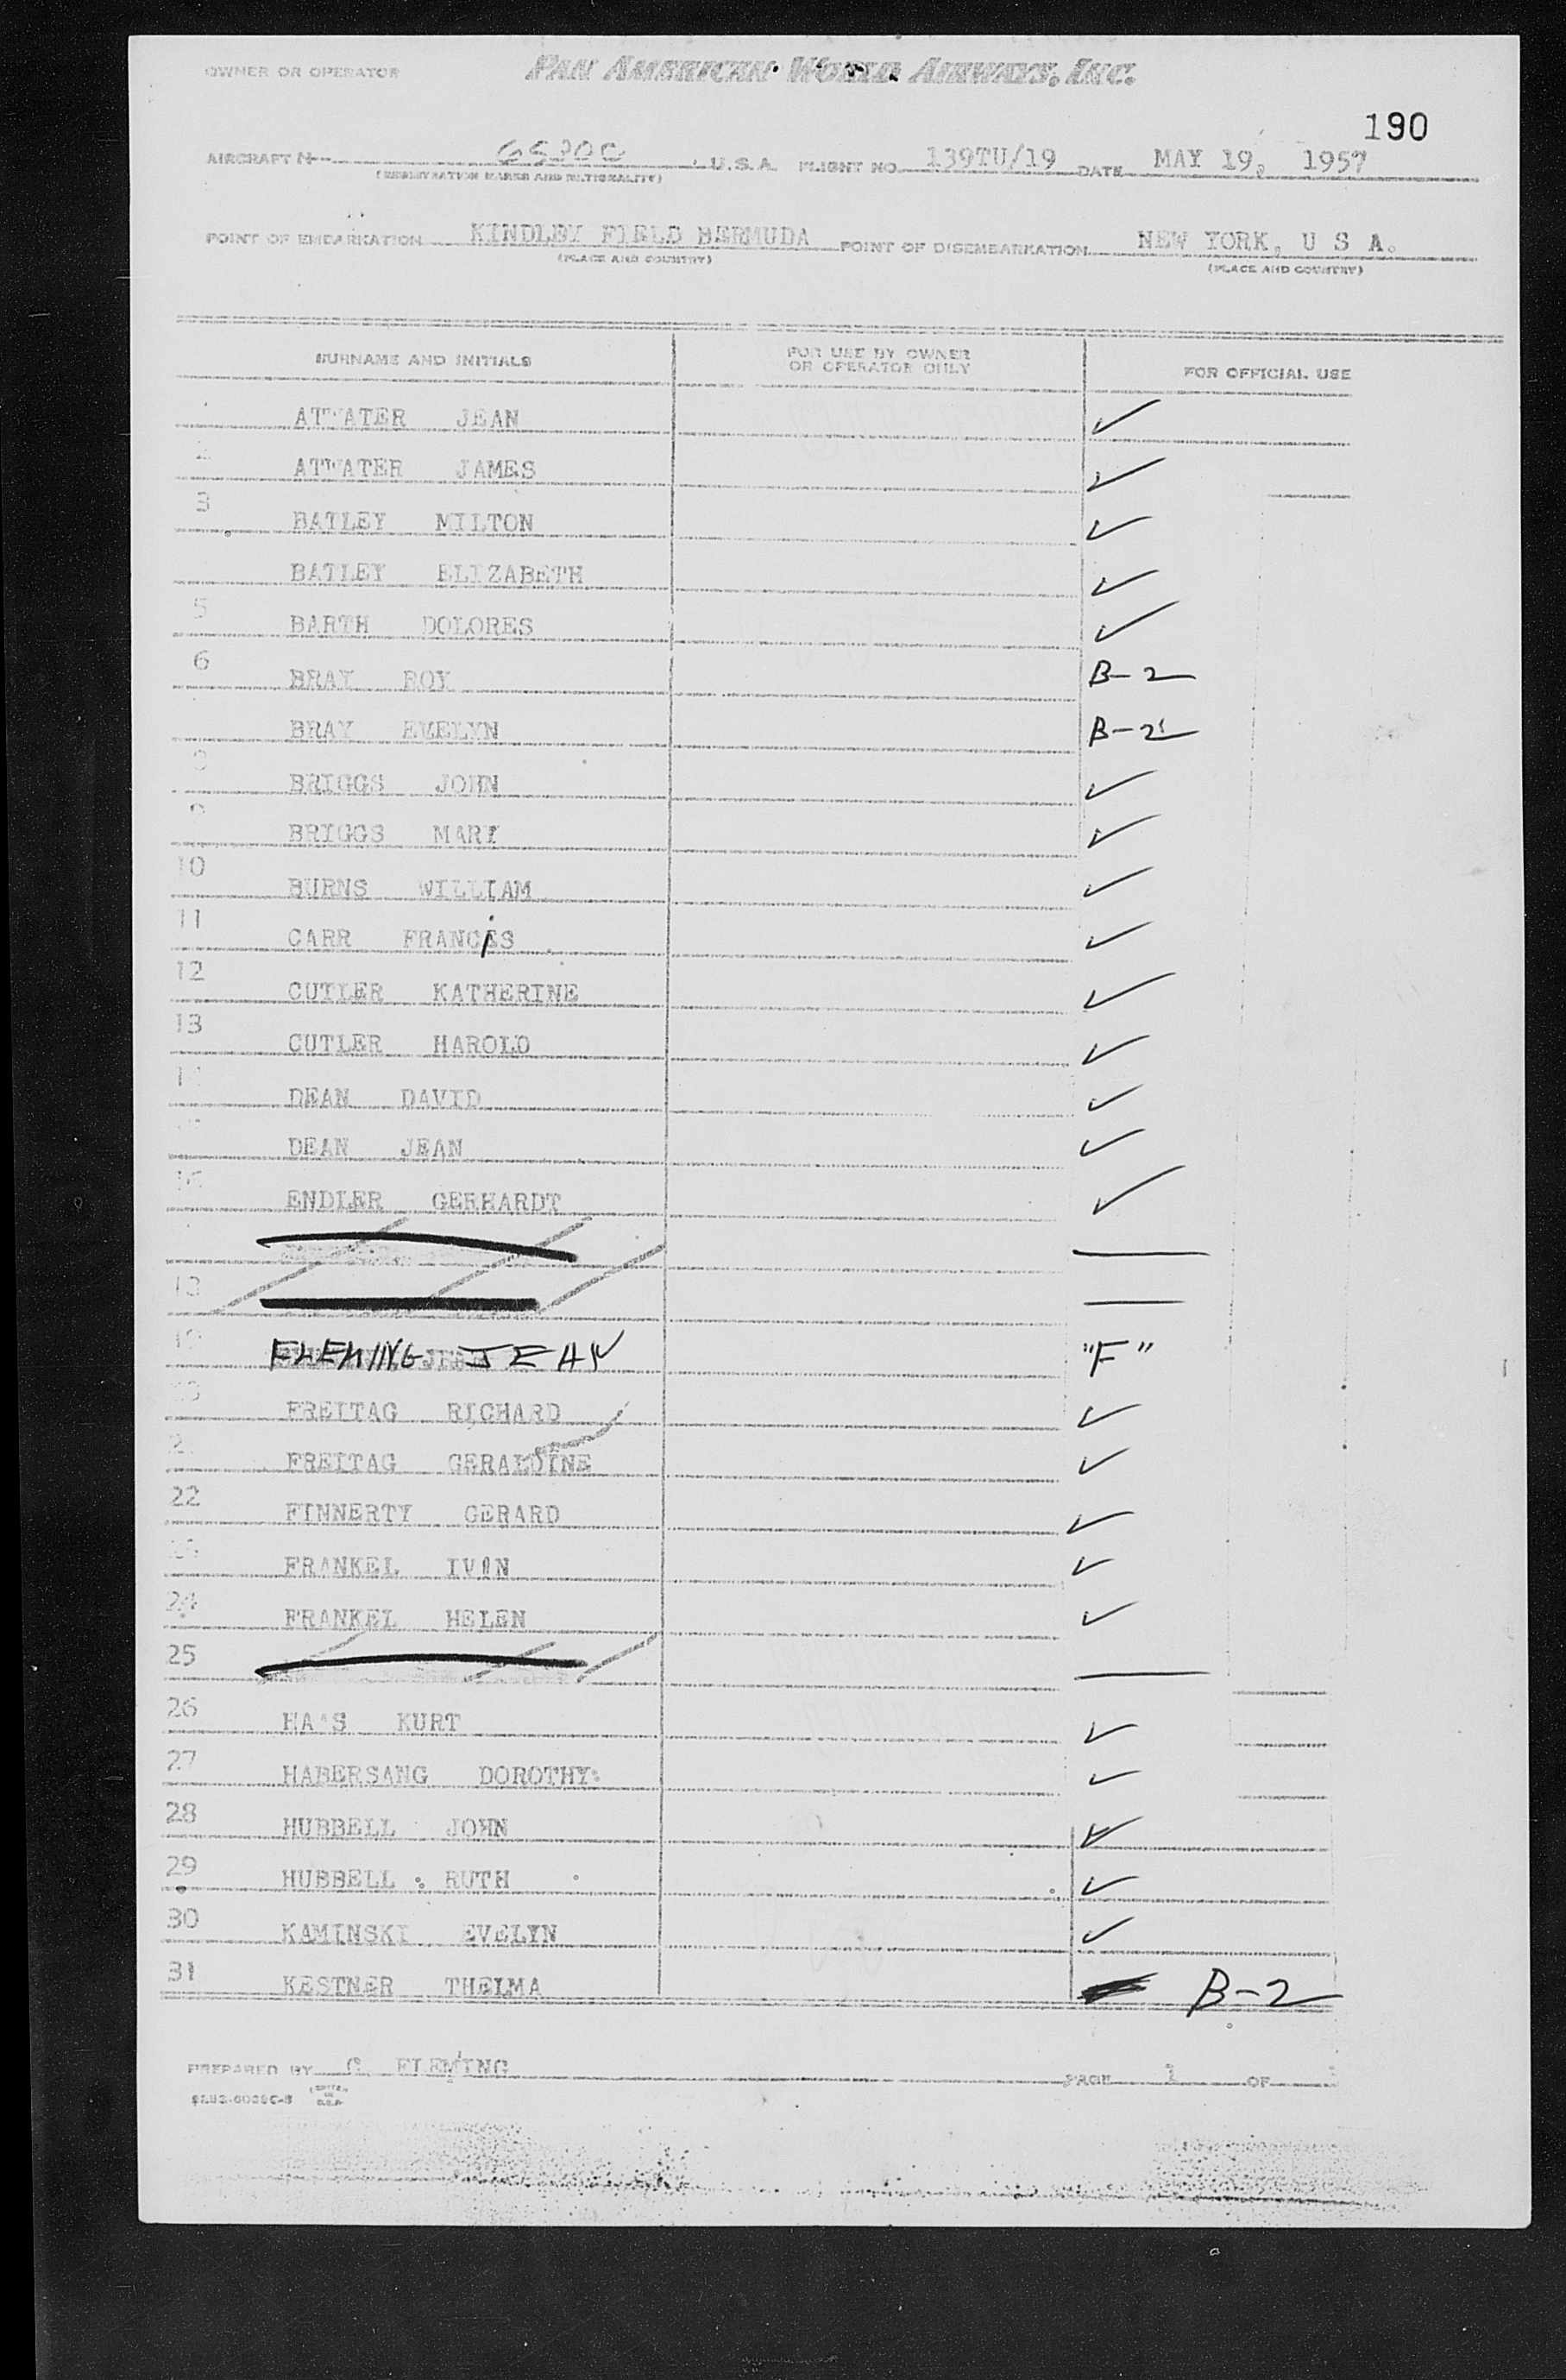 OWNER OR OPERATOR PAN AMERICAN WORLD AIRWAYS, INC.
190
AIRCRAFT N U.S.A. FLIGHT NO. 139TU/19 DATE MAY 19, 1957
(REGISTRATION MARKS AND NATIONALITY)
POINT OF EMBARKATION KINDLEY FIELD BERMUDA POINT OF DISEMBARKATION NEW YORK, U S A.
(PLACE AND COUNTRY) (PLACE AND COUNTRY)
SURNAME AND INITIALS FOR USE BY OWNER OR OPERATOR ONLY FOR OFFICIAL USE
ATWATER JEAN ✓
ATWATER JAMES ✓
3 BATLEY MILTON ✓
BATLEY ELIZABETH ✓
5 BARTH DOLORES ✓
6 BRAY ROY B-2
BRAY EVELYN B-2
BRIGGS JOHN ✓
BRIGGS MARY ✓
10 BURNS WILLIAM ✓
11 CARR FRANCIS ✓
12 CUTLER KATHERINE ✓
13 CUTLER HAROLD ✓
DEAN DAVID ✓
DEAN JEAN ✓
16 ENDLER GERHARDT ✓
—
18 —
19 FLEMING JEAN "F"
FREITAG RICHARD ✓
2 FREITAG GERALDINE ✓
22 FINNERTY GERARD ✓
FRANKEL IVAN ✓
24 FRANKEL HELEN ✓
25 —
26 HAAS KURT ✓
27 HABERSANG DOROTHY ✓
28 HUBBELL JOHN ✓
29 HUBBELL RUTH ✓
30 KAMINSKI EVELYN ✓
31 KESTNER THELMA B-2
PREPARED BY C. FLEMING PAGE 1 OF